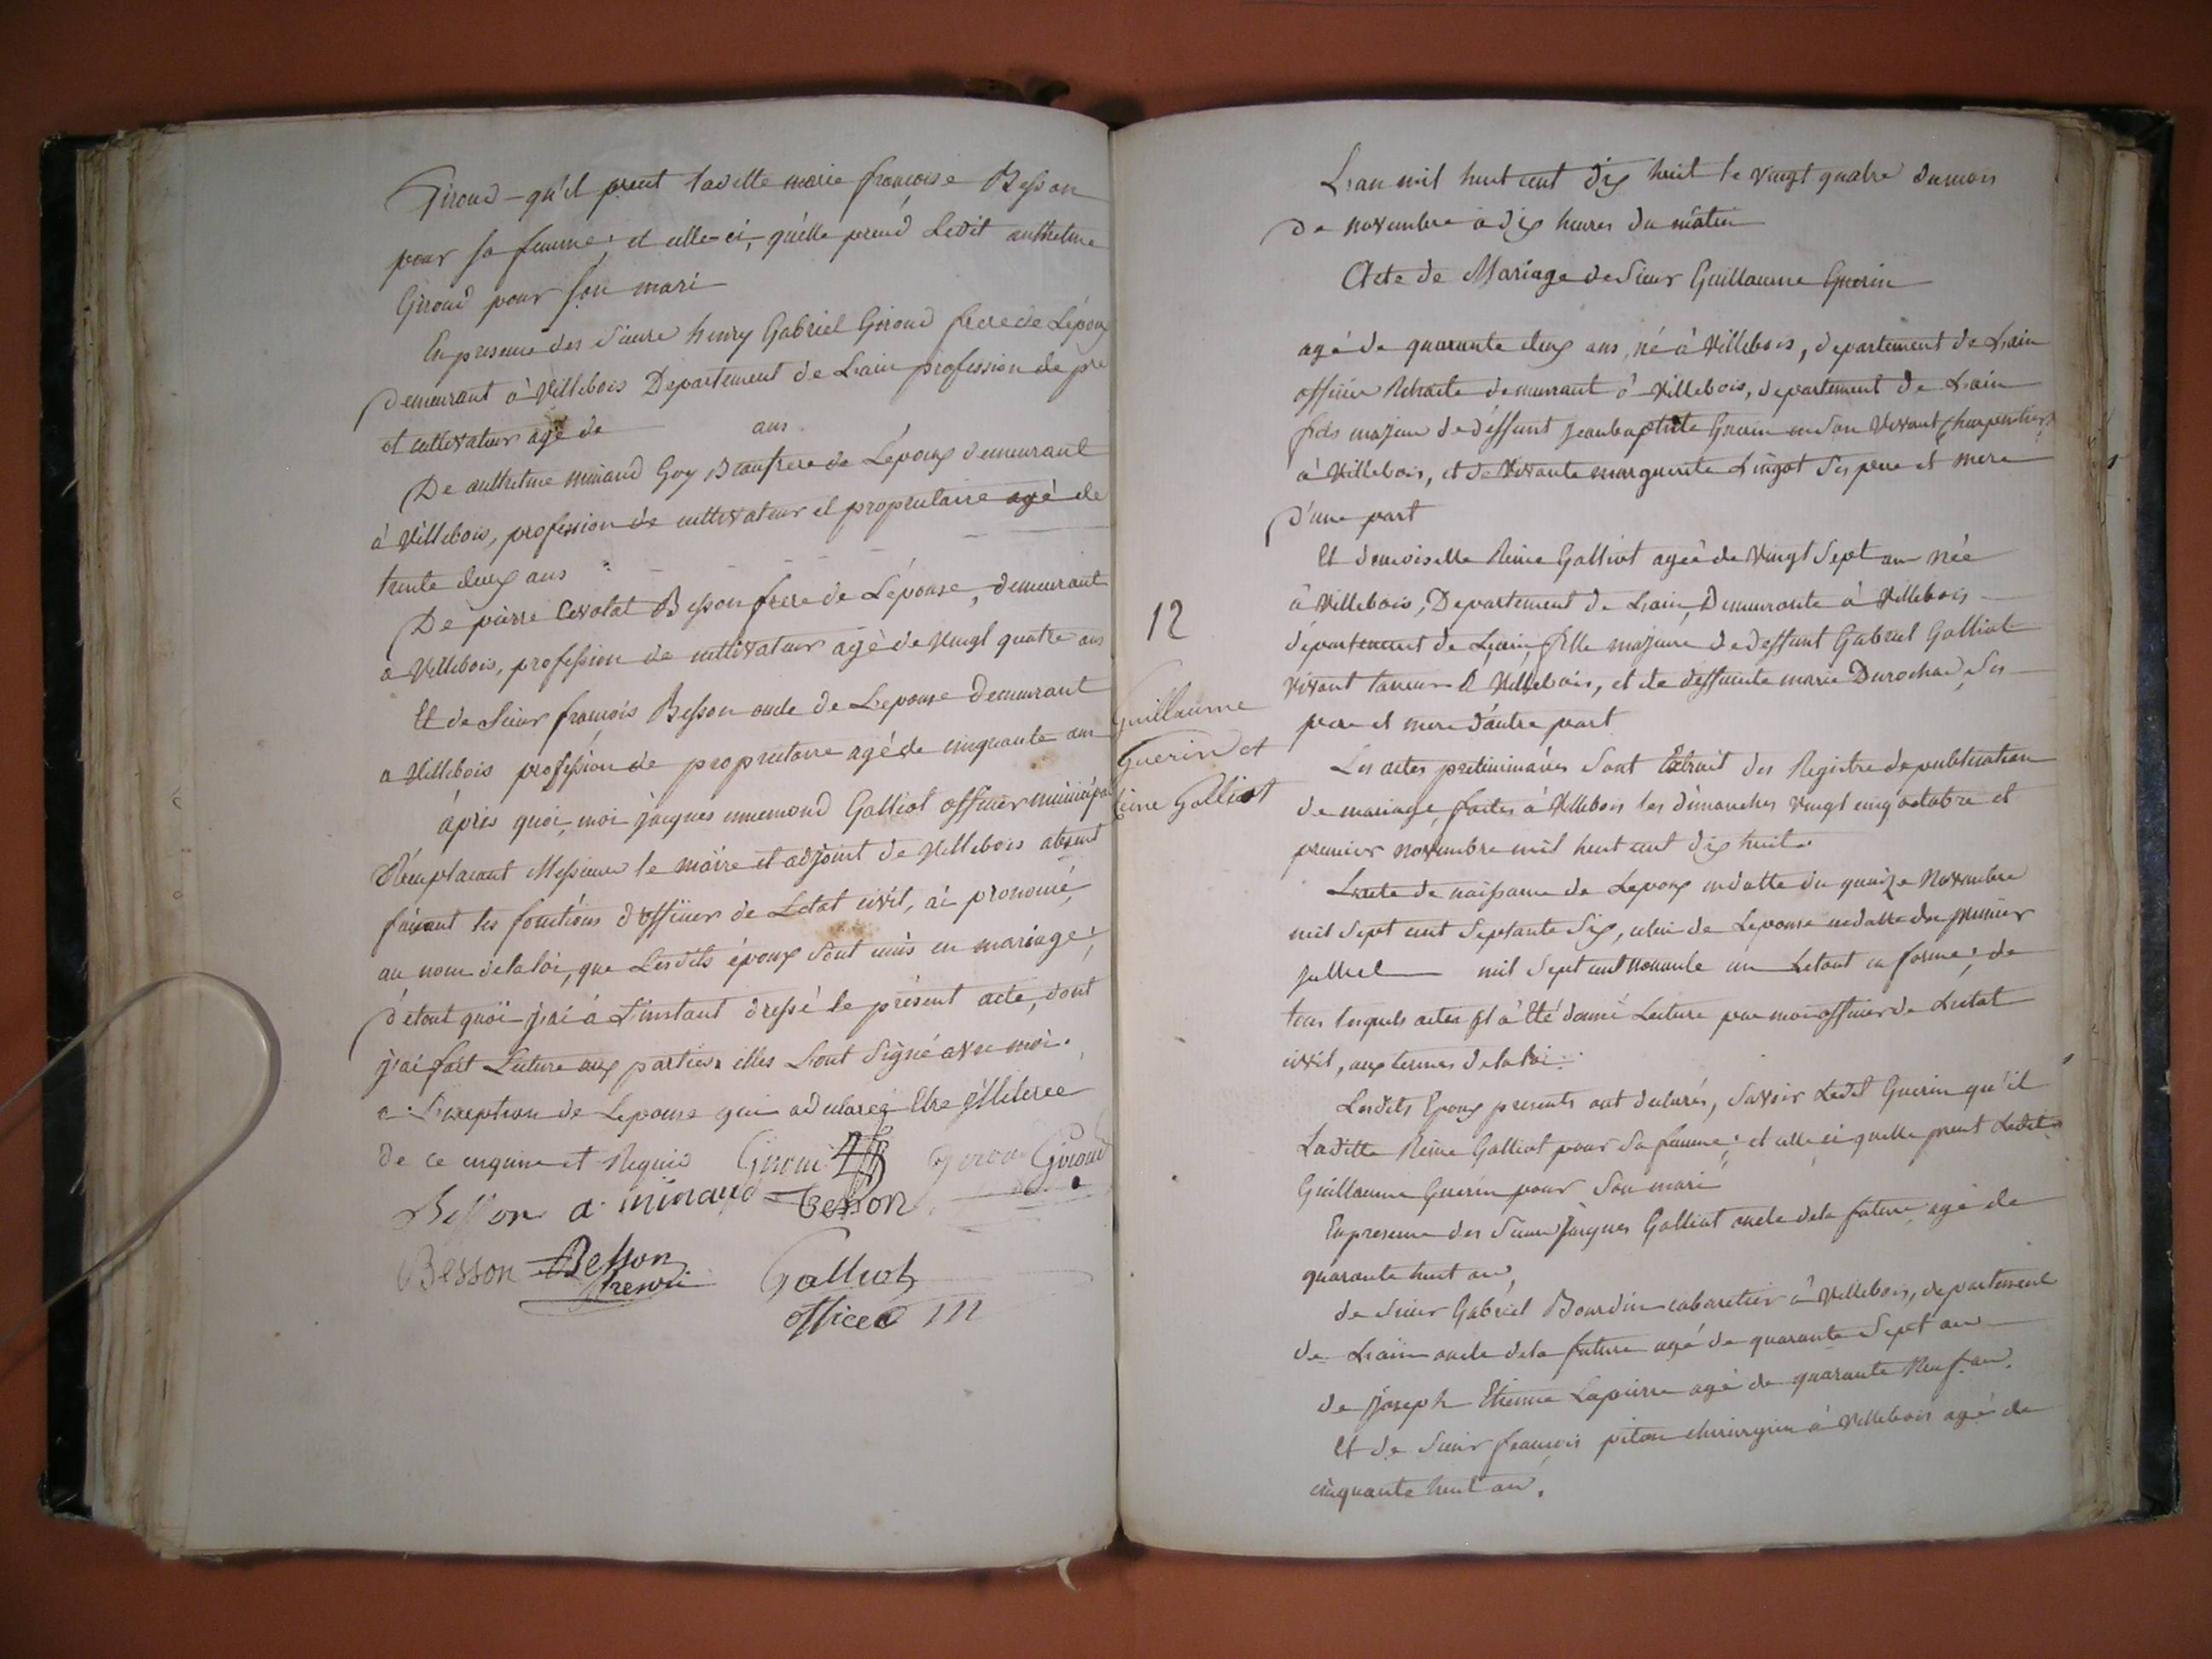 Giroud - qu'il prent laditte marie francoise Besson
pour sa femme; et celle-ci, qu'elle prend Ledit anthelme
Giroud pour son mari
En presence des Sieurs henry Gabriel Giroud frere de Lépoux
demeurant à Villebois Departement de Lain profession de pre
et cultivateur agé de ans
De anthelme minand Goy Beaufrere de Lépoux demeurant
à Villebois, profession de cultivateur et proprietaire agé de
trente deux ans
De pierre Besson frere de Lépouse, demeurant
a Villebois, profession de cultivateur agé de vingt quatre ans
Et de Sieur francois Besson oncle de Lepouse demeurant
a Villebois profession de proprietaire agé de cinquante ans
après quoi, moi jacques ennemond Galliot officier municipal
Remplacant Messieurs le maire et adjoint de Villebois absent
faisant les fonctions d'officier de Letat civil, ai prononcé,
au nom de la loi, que Lesdits époux sont unis en mariage;
de tout quoi j'ai à L'instant dressé le présent acte, dont
j'ai fait Lecture aux parties elles L'ont Signé avec moi.
a L'exeption de Lepouse qui a declaree Etre illiteree
de ce enquise et Requise Giroud Giroud Giroud
Besson a. minand Besson
Besson Besson
Galliot
officer m
12
Guillaume
Guerin et
Reine Galliot
L'an mil huit cent dix huit le vingt quatre du mois
de novembre à dix heures du matin
Acte de Mariage de Sieur Guillaume Guerin
agé de quarante deux ans, né à Villebois, departement de Lain
officier Retraite demeurant à Villebois, departement de Lain
fils majeur de déffunt Jean baptiste Guerin en son Vivant Charpentier
à Villebois, et de Vivante marguerite Lingot Ses pere et mere
d'une part
Et demoiselle Reine Galliot agée de vingt Sept ans née
à Villebois, Departement de Lain, Demeurante à Villebois
département de Lain, fille majeure de deffunt Gabriel Galliot
vivant taneur à Villebois, et de deffunte marie Durochad, Ses
pere et mere d'autre part
Les actes preliminaires Sont Extrait des Registre de publication
de mariage, faites à Villebois les dimanches vingt cinq octobre et
premier novembre mil huit cent dix huit.
L'acte de naissance de Lepoux en datte du quinze Novembre
mil Sept cent Septante Six, celui de Lepouse en datte du premier
juillet mil Sept cent nonante un Letout en forme; de
tous lesquels actes il à été donné Lecture par moi officier de Letat
civil, aux termes de la loi.
Lesdits Epoux presents ont declarés, Savoir Ledit Guerin qu'il
Laditte Reine Galliot pour sa femme; et celle ci quelle prent Ledit
Guillaume Guerin pour Son mari
En presence des Sieurs Jacques Galliot oncle dela future agé de
quarante huit ans,
de Sieur Gabriel Bourdin cabaretier à Villebois, departement
de Lain oncle dela future agé de quarante Sept ans
de joseph Etienne Lapierre agé de quarante Neuf ans.
Et de Sieur francois piton chirurgien à Villebois agé de
cinquante huit ans.